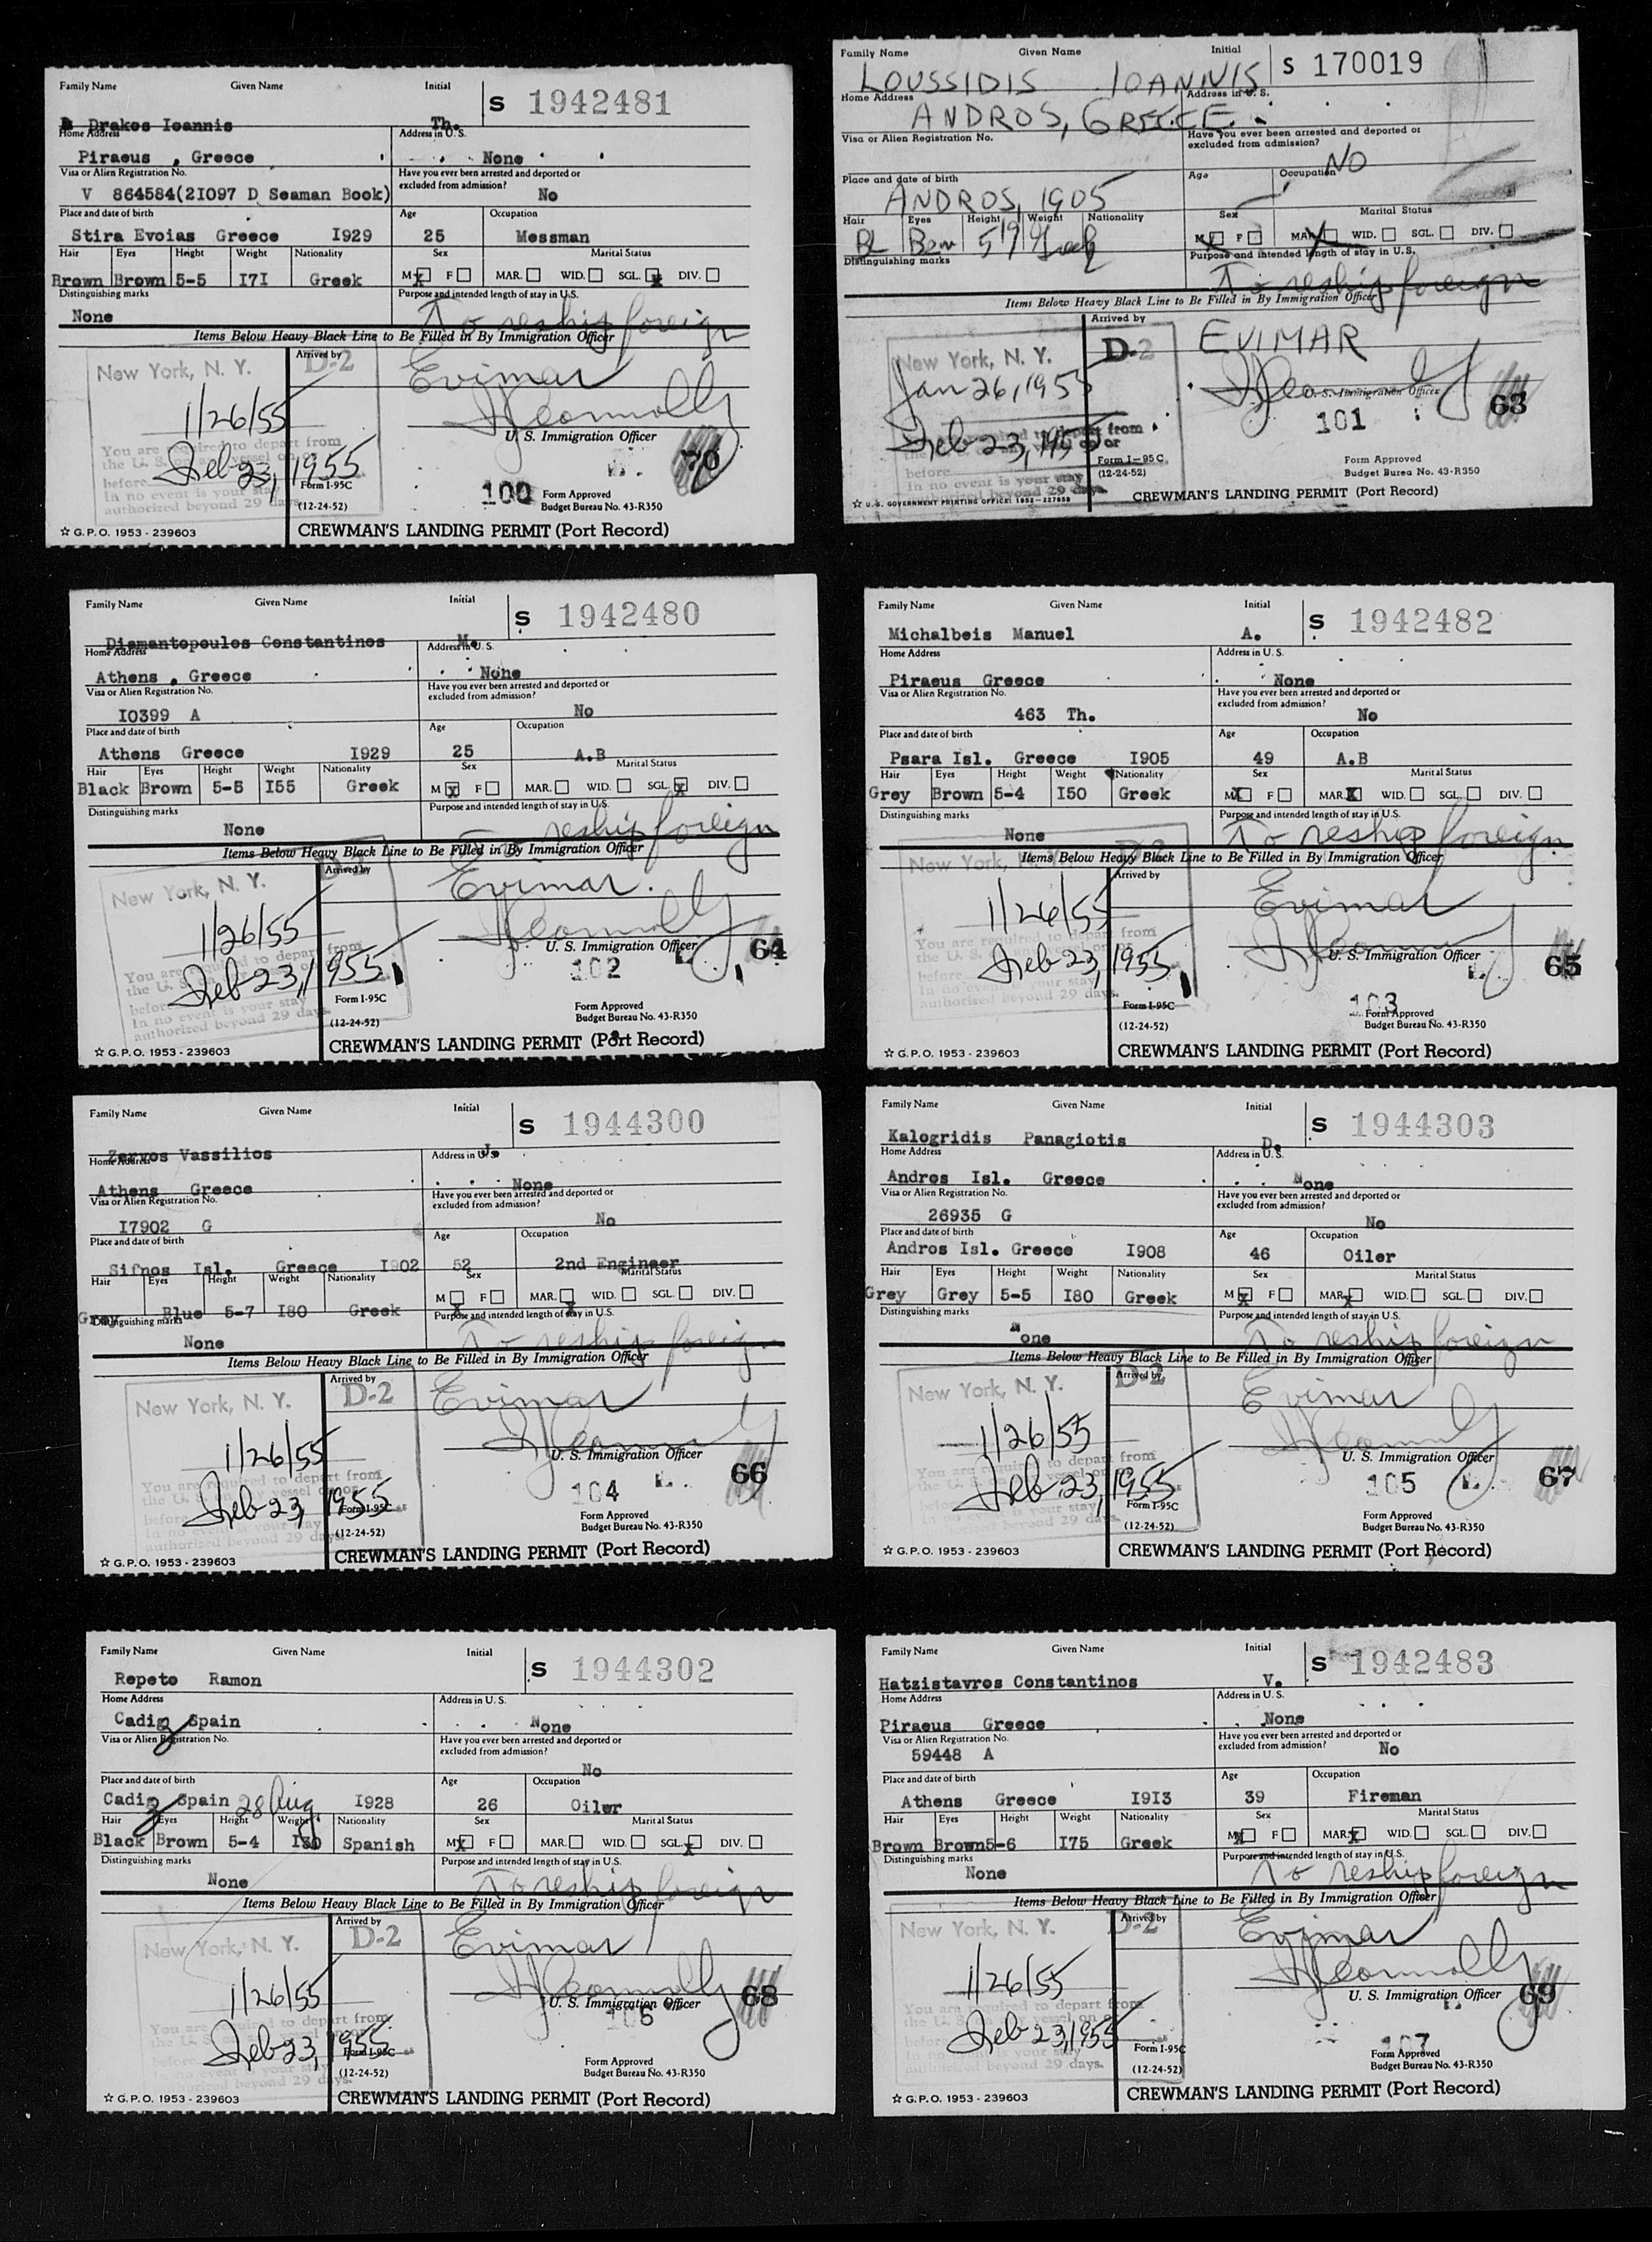 Family Name Given Name Initial S 1942481
Drakos Ioannis Th.
Home Address Address in U. S.
Piraeus , Greece None
Visa or Alien Registration No. Have you ever been arrested and deported or excluded from admission?
V 864584(2I097 D Seaman Book) No
Place and date of birth Age Occupation
Stira Evoias Greece I929 25 Messman
Hair Eyes Height Weight Nationality Sex Marital Status
Brown Brown 5-5 I7I Greek M X F MAR. WID. SGL. X DIV.
Distinguishing marks Purpose and intended length of stay in U.S.
None To reship foreign
Items Below Heavy Black Line to Be Filled in By Immigration Officer
New York, N. Y. Arrived by D-2 Evimar
1/26/55 J Connolly
You are required to depart from U. S. Immigration Officer
the U. S. on any vessel on or
before Feb 23, 1955 70
In no event is your stay Form I-95C 100 Form Approved
authorized beyond 29 days. (12-24-52) Budget Bureau No. 43-R350
☆ G.P.O. 1953 - 239603 CREWMAN'S LANDING PERMIT (Port Record)
Family Name Given Name Initial S 170019
LOUSSIDIS IOANNIS
Home Address Address in U. S.
ANDROS, GREECE
Visa or Alien Registration No. Have you ever been arrested and deported or excluded from admission?
NO
Place and date of birth Age Occupation
ANDROS, 1905
Hair Eyes Height Weight Nationality Sex Marital Status
BL Bem 5'9 Greek M X F MAR. X WID. SGL. DIV.
Distinguishing marks Purpose and intended length of stay in U.S.
To reship foreign
Items Below Heavy Black Line to Be Filled in By Immigration Officer
New York, N. Y. Arrived by D-2 EVIMAR
Jan 26, 1955 J Connolly
U. S. Immigration Officer
Feb 23, 1955 101 63
before Form I-95C Form Approved
In no event is your stay (12-24-52) Budget Burea No. 43-R350
authorized beyond 29 days.
☆ U.S. GOVERNMENT PRINTING OFFICE: 1952—227859 CREWMAN'S LANDING PERMIT (Port Record)
Family Name Given Name Initial S 1942480
Diamantopoulos Constantinos M.
Home Address Address in U. S.
Athens , Greece None
Visa or Alien Registration No. Have you ever been arrested and deported or excluded from admission?
I0399 A No
Place and date of birth Age Occupation
Athens Greece I929 25 A.B
Hair Eyes Height Weight Nationality Sex Marital Status
Black Brown 5-5 I55 Greek M X F MAR. WID. SGL. X DIV.
Distinguishing marks Purpose and intended length of stay in U.S.
None To reship foreign
Items Below Heavy Black Line to Be Filled in By Immigration Officer
New York, N. Y. Arrived by D-2 Evimar.
1/26/55 J Connolly
You are required to depart from U. S. Immigration Officer 64
the U. S. Feb 23, 1955 102
before
In no event is your stay Form I-95C Form Approved
authorized beyond 29 days. (12-24-52) Budget Bureau No. 43-R350
☆ G.P.O. 1953 - 239603 CREWMAN'S LANDING PERMIT (Port Record)
Family Name Given Name Initial S 1942482
Michalbeis Manuel A.
Home Address Address in U. S.
Piraeus Greece None
Visa or Alien Registration No. Have you ever been arrested and deported or excluded from admission?
463 Th. No
Place and date of birth Age Occupation
Psara Isl. Greece I905 49 A.B
Hair Eyes Height Weight Nationality Sex Marital Status
Grey Brown 5-4 I50 Greek M X F MAR. X WID. SGL. DIV.
Distinguishing marks Purpose and intended length of stay in U.S.
None To reship foreign
Items Below Heavy Black Line to Be Filled in By Immigration Officer
New York, N. Y. Arrived by D-2 Evimar
1/26/55 J Connolly
You are required to depart from U. S. Immigration Officer 65
the U. S. Feb 23, 1955
before
In no event is your stay Form I-95C 103 Form Approved
authorized beyond 29 days. (12-24-52) Budget Bureau No. 43-R350
☆ G.P.O. 1953 - 239603 CREWMAN'S LANDING PERMIT (Port Record)
Family Name Given Name Initial S 1944300
Zervos Vassilios J.
Home Address Address in U. S.
Athens Greece None
Visa or Alien Registration No. Have you ever been arrested and deported or excluded from admission?
I7902 G No
Place and date of birth Age Occupation
Sifnos Isl. Greece I902 52 2nd Engineer
Hair Eyes Height Weight Nationality Sex Marital Status
Grey Blue 5-7 I80 Greek M X F MAR. X WID. SGL. DIV.
Distinguishing marks Purpose and intended length of stay in U.S.
None To reship foreign
Items Below Heavy Black Line to Be Filled in By Immigration Officer
New York, N. Y. Arrived by D-2 Evimar
1/26/55 J Connolly
You are required to depart from U. S. Immigration Officer 66
the U. S. on any vessel on or 104
before Feb 23, 1955 Form I-95C
In no event is your stay Form Approved
authorized beyond 29 days. (12-24-52) Budget Bureau No. 43-R350
☆ G.P.O. 1953 - 239603 CREWMAN'S LANDING PERMIT (Port Record)
Family Name Given Name Initial S 1944303
Kalogridis Panagiotis D.
Home Address Address in U. S.
Andros Isl. Greece None
Visa or Alien Registration No. Have you ever been arrested and deported or excluded from admission?
26935 G No
Place and date of birth Age Occupation
Andros Isl. Greece I908 46 Oiler
Hair Eyes Height Weight Nationality Sex Marital Status
Grey Grey 5-5 I80 Greek M X F MAR. X WID. SGL. DIV.
Distinguishing marks Purpose and intended length of stay in U.S.
None To reship foreign
Items Below Heavy Black Line to Be Filled in By Immigration Officer
New York, N. Y. Arrived by D-2 Evimar
1/26/55 J Connolly
You are required to depart from U. S. Immigration Officer 67
the U. S. Feb 23, 1955 105
before Form I-95C
In no event is your stay Form Approved
authorized beyond 29 days. (12-24-52) Budget Bureau No. 43-R350
☆ G.P.O. 1953 - 239603 CREWMAN'S LANDING PERMIT (Port Record)
Family Name Given Name Initial S 1944302
Repeto Ramon
Home Address Address in U. S.
Cadiz Spain None
Visa or Alien Registration No. Have you ever been arrested and deported or excluded from admission?
No
Place and date of birth Age Occupation
Cadiz Spain 28 Aug. I928 26 Oiler
Hair Eyes Height Weight Nationality Sex Marital Status
Black Brown 5-4 I30 Spanish M X F MAR. WID. SGL. X DIV.
Distinguishing marks Purpose and intended length of stay in U.S.
None To reship foreign
Items Below Heavy Black Line to Be Filled in By Immigration Officer
New York, N. Y. Arrived by D-2 Evimar
1/26/55 J Connolly 68
You are required to depart from U. S. Immigration Officer
the U. S. Feb 23, 1955 106
before Form I-95C
In no event is your stay Form Approved
authorized beyond 29 days. (12-24-52) Budget Bureau No. 43-R350
☆ G.P.O. 1953 - 239603 CREWMAN'S LANDING PERMIT (Port Record)
Family Name Given Name Initial S 1942483
Hatzistavros Constantinos V.
Home Address Address in U. S.
Piraeus Greece None
Visa or Alien Registration No. Have you ever been arrested and deported or excluded from admission?
59448 A No
Place and date of birth Age Occupation
Athens Greece I9I3 39 Fireman
Hair Eyes Height Weight Nationality Sex Marital Status
Brown Brown 5-6 I75 Greek M X F MAR. X WID. SGL. DIV.
Distinguishing marks Purpose and intended length of stay in U.S.
None To reship foreign
Items Below Heavy Black Line to Be Filled in By Immigration Officer
New York, N. Y. Arrived by D-2 Evimar
1/26/55 J Connolly 69
You are required to depart from U. S. Immigration Officer
the U. S. Feb 23, 1955
before Form I-95C 107
In no event is your stay Form Approved
authorized beyond 29 days. (12-24-52) Budget Bureau No. 43-R350
☆ G.P.O. 1953 - 239603 CREWMAN'S LANDING PERMIT (Port Record)